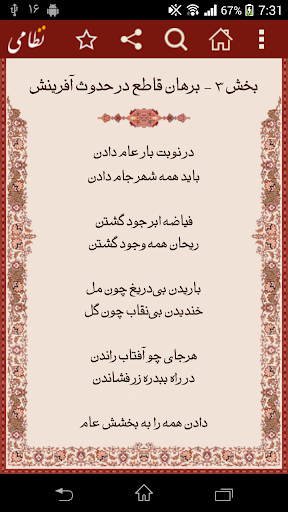 ۱۶ 67% 7:31
نظامی
بخش ۳ - برهان قاطع در حدوث آفرینش
در نوبت بار عام دادن
باید همه شهر جام دادن
فیاضه ابر جود گشتن
ریحان همه وجود گشتن
باریدن بی‌دریغ چون مل
خندیدن بی‌نقاب چون گل
هرجای چو آفتاب راندن
در راه ببدره زر فشاندن
دادن همه را به بخشش عام